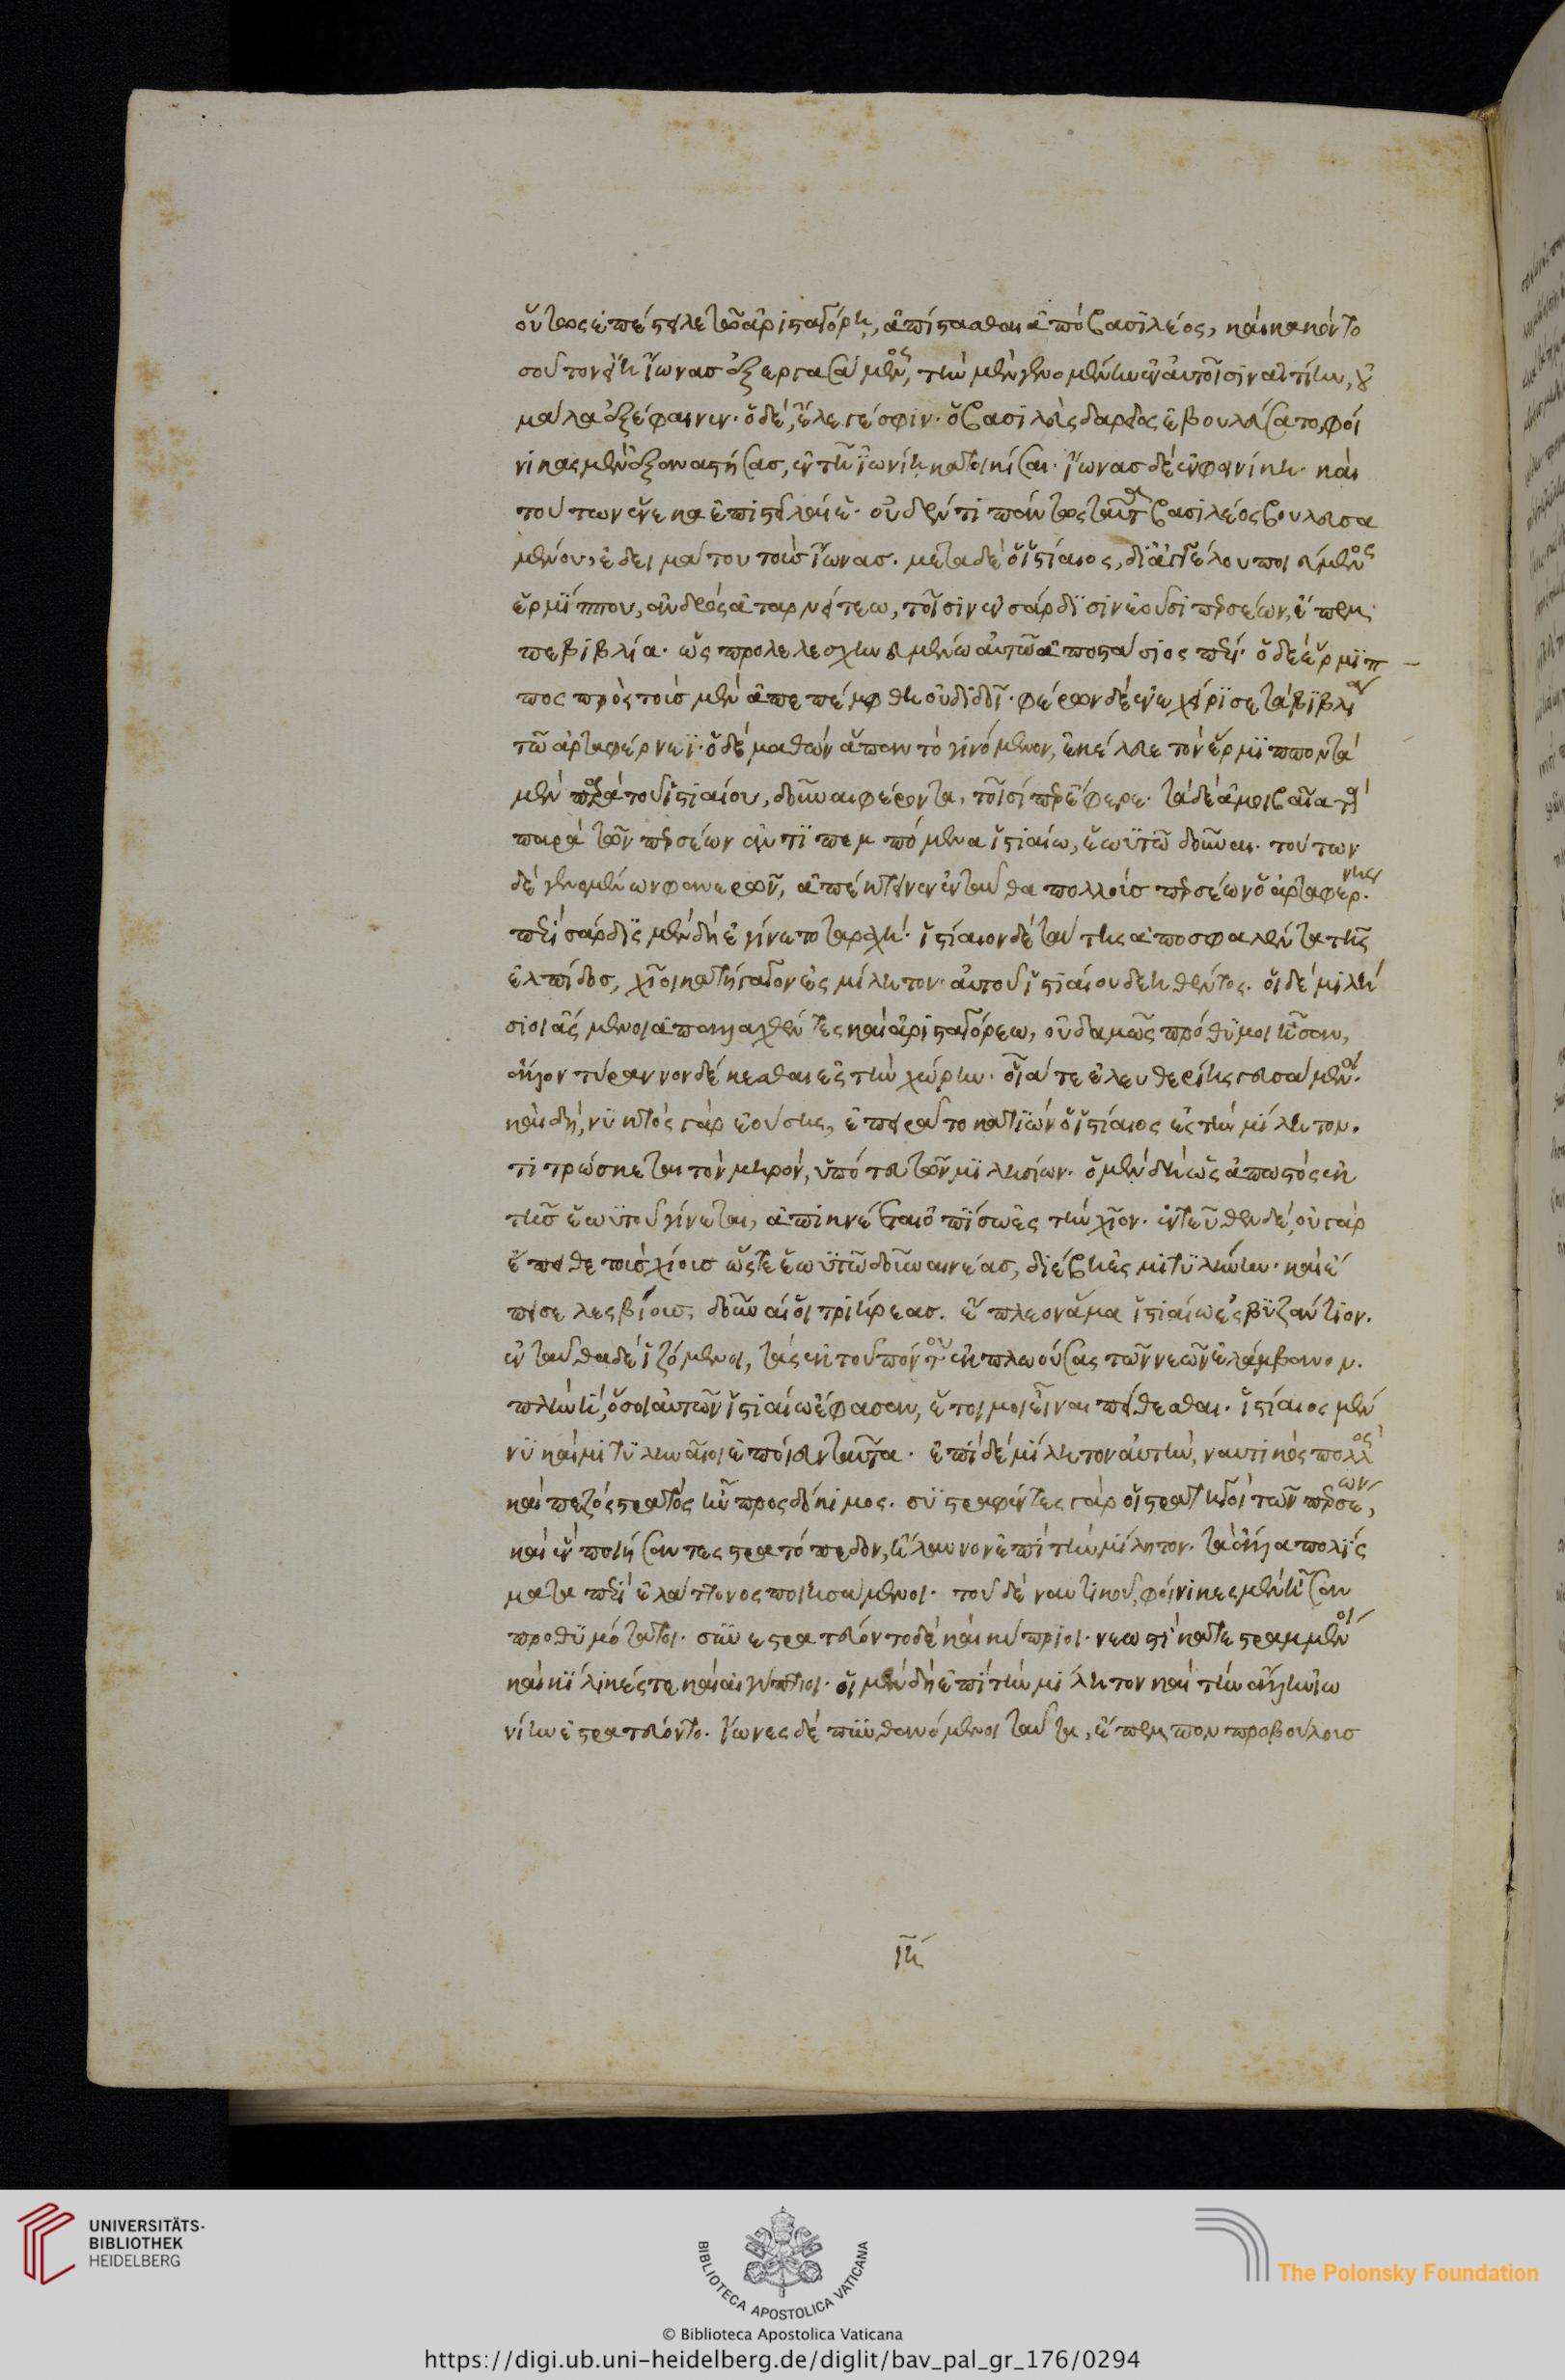 οὕτως ἐπέστειλε τῷ ἀρισταγόρη, ἀπίστασθαι ἀπὸ βασιλέος, καὶ κακὸν το
σοῦτον εἴη ἴωνας ἐξεργασάμενος, τὴν μὲν γενομένην ἐν αὐτοῖσιν αἰτίην, οὐ
μάλα ἐξέφαινεν· ὁ δὲ, ἔλεγέ σφιν· ὁ βασιλεὺς δαρεῖος ἐβουλεύσατο, φοί
νικας μὲν ἐξαναστήσας, ἐν τῇ ἰωνίῃ κατοικίσαι· ἴωνας δὲ ἐν φοινίκῃ· καὶ
τούτων εἵνεκα ἐπιστείλειε· οὐδέν τι πάντως ταῦτα βασιλέος βουλευσα
μένου, ἐδειμάτου τοὺς ἴωνας. μετὰ δὲ ὁ ἱστίαιος, δι' ἀγγέλου ποιεύμενος
ἑρμίππου, ἀνδρὸς ἀταρνείτεω, τοῖσιν ἐν σάρδισιν ἐοῦσι περσέων, ἔπεμ
πε βιβλία· ὡς προλελεσχηνευμένω αὐτῷ ἀποστάσιος πέρι· ὁ δὲ ἕρμιπ
πος πρὸς τοὺς μὲν ἀπεπέμφθη οὐ διδοῖ· φέρων δὲ ἐνεχείρισε τὰ βιβλία
τῷ ἀρταφέρνεϊ· ὁ δὲ μαθὼν ἅπαν τὸ γινόμενον, ἐκέλευε τὸν ἕρμιππον τὰ
μὲν παρὰ τοῦ ἱστιαίου, δοῦναι φέροντα, τοῖσί περ ἔφερε· τὰ δὲ ἀμοιβαῖα τὰ
παρὰ τῶν περσέων ἀντιπεμπόμενα ἱστιαίω, ἑωϋτῷ δοῦναι. τούτων
δὲ γενομένων φανερῶν, ἀπέκτεινεν ἐνταῦθα πολλοὺς περσέων ὁ ἀρταφέρνης.
περὶ σάρδις μὲν δὴ ἐγίνετο ταραχή· ἱστίαιον δὲ ταύτης ἀποσφαλέντα τῆς
ἐλπίδος, χῖοι κατήγαγον ἐς μίλητον· αὐτοῦ ἱστιαίου δεηθέντος. οἱ δὲ μιλή
σιοι ἄσμενοι ἀπαλλαχθέντες καὶ ἀρισταγόρεω, οὐδαμῶς πρόθυμοι ἦσαν,
ἄλλον τύραννον δέκεσθαι ἐς τὴν χώρην· οἷά τε ἐλευθερίης γευσάμενοι.
καὶ δὴ, νυκτὸς γὰρ ἐούσης, ἐπειρᾶτο κατιὼν ὁ ἱστίαιος ἐς τὴν μίλητον.
τιτρώσκεται τὸν μηρὸν, ὑπό τευ τῶν μιλησίων. ὁ μὲν δὴ ὡς ἀπωστὸς ἐκ
τῆς ἑωϋτοῦ γίνεται, ἀπικνέεται ὀπίσω ἐς τὴν χῖον· ἐντεῦθεν δὲ, οὐ γὰρ
ἔπειθε τοὺς χίους ὥστε ἑωϋτῷ δοῦναι νέας, διέβη ἐς μιτυλήνην· καὶ ἔ
πεισε λεσβίους, δοῦναί οἱ τριήρεας. ἔπλεον ἅμα ἱστιαίω ἐς βυζάντιον.
ἐνταῦθα δὲ ἱζόμενοι, τὰς ἐκ τοῦ πόντου ἐκπλωούσας τῶν νεῶν ἐλάμβανον.
πλὴν ἢ, ὅσοι αὐτῶν ἱστιαίω ἔφασαν, ἕτοιμοι εἶναι πείθεσθαι. ἱστίαιος μέν
νυ καὶ μιτυληναῖοι ἐποίευν ταῦτα. ἐπὶ δὲ μίλητον αὐτὴν, ναυτικὸς πολλὸς
καὶ πεζὸς στρατὸς ἦν προσδόκιμος. συστραφέντες γὰρ οἱ στρατηγοὶ τῶν περσέων,
καὶ ἓν ποιήσαντες στρατόπεδον, ἤλαυνον ἐπὶ τὴν μίλητον. τὰ ἄλλα πολίς
ματα περὶ ἐλάττονος ποιησάμενοι. τοῦ δὲ ναυτικοῦ, φοίνικες μὲν ἦσαν
προθυμότατοι. συνεστρατεύοντο δὲ καὶ κύπριοι· νεωστὶ κατεστραμμένοι
καὶ κίλικές τε καὶ αἰγύπτιοι. οἱ μὲν δὴ ἐπὶ τὴν μίλητον καὶ τὴν ἄλλην ἰω
νίην ἐστρατεύοντο. ἴωνες δὲ πυνθανόμενοι ταῦτα, ἔπεμπον προβούλους
ιη
UNIVERSITÄTS-
BIBLIOTHEK
HEIDELBERG
BIBLIOTECA APOSTOLICA VATICANA
The Polonsky Foundation
© Biblioteca Apostolica Vaticana
https://digi.ub.uni-heidelberg.de/diglit/bav_pal_gr_176/0294